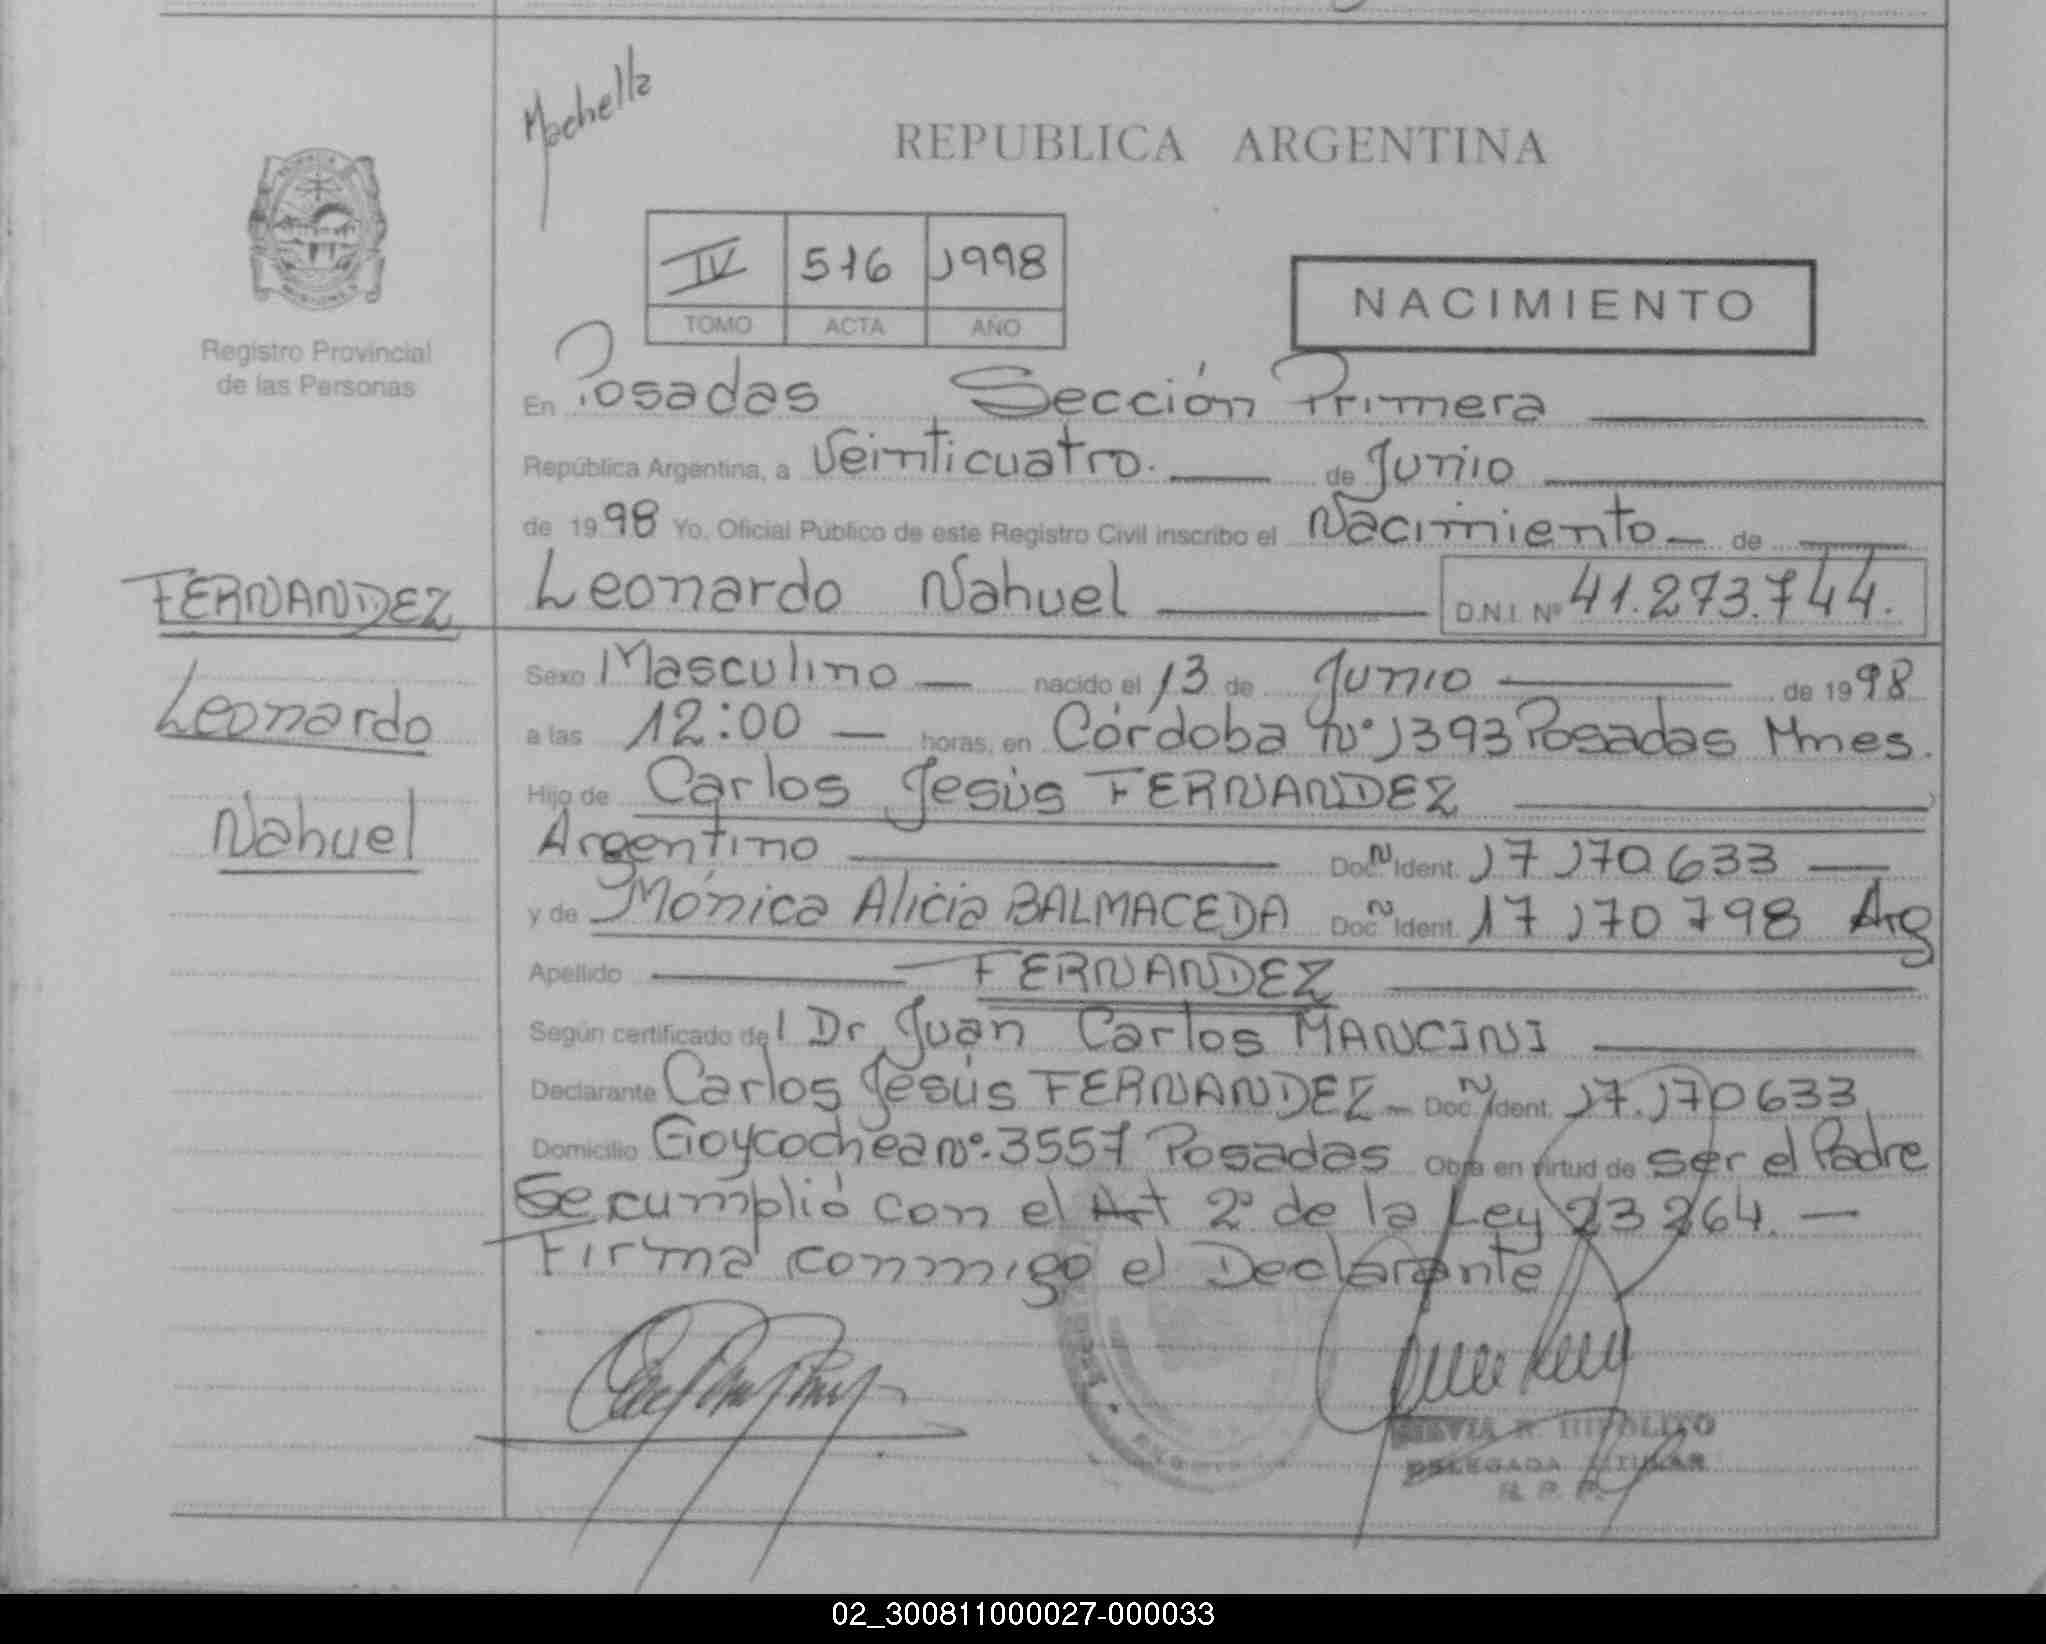 Mochella
REPUBLICA ARGENTINA
IV 516 1998
TOMO ACTA AÑO
NACIMIENTO
Registro Provincial
de las Personas
En Posadas Sección Primera
República Argentina, a Veinticuatro. de Junio
de 1998 Yo, Oficial Público de este Registro Civil inscribo el Nacimiento de
Leonardo Nahuel D.N.I. Nº 41.273.744.
FERNANDEZ
Leonardo
Nahuel
Sexo Masculino nacido el 13 de Junio de 1998
a las 12:00 horas, en Córdoba Nº 1393 Posadas Mnes.
Hijo de Carlos Jesús FERNANDEZ
Argentino Doc. N Ident. 17170633
y de Mónica Alicia BALMACEDA Doc. N Ident. 17170798 Arg
Apellido FERNANDEZ
Según certificado del Dr Juan Carlos MANCINI
Declarante Carlos Jesús FERNANDEZ Doc. N Ident. 17.170633
Domicilio Goycochea nº. 3557 Posadas Obra en virtud de ser el Padre
Se cumplió con el Art 2º de la Ley 23264.
Firma conmigo el Declarante
SILVIA R. HIPOLITO
DELEGADA TITULAR
R. P. P.
02_300811000027-000033